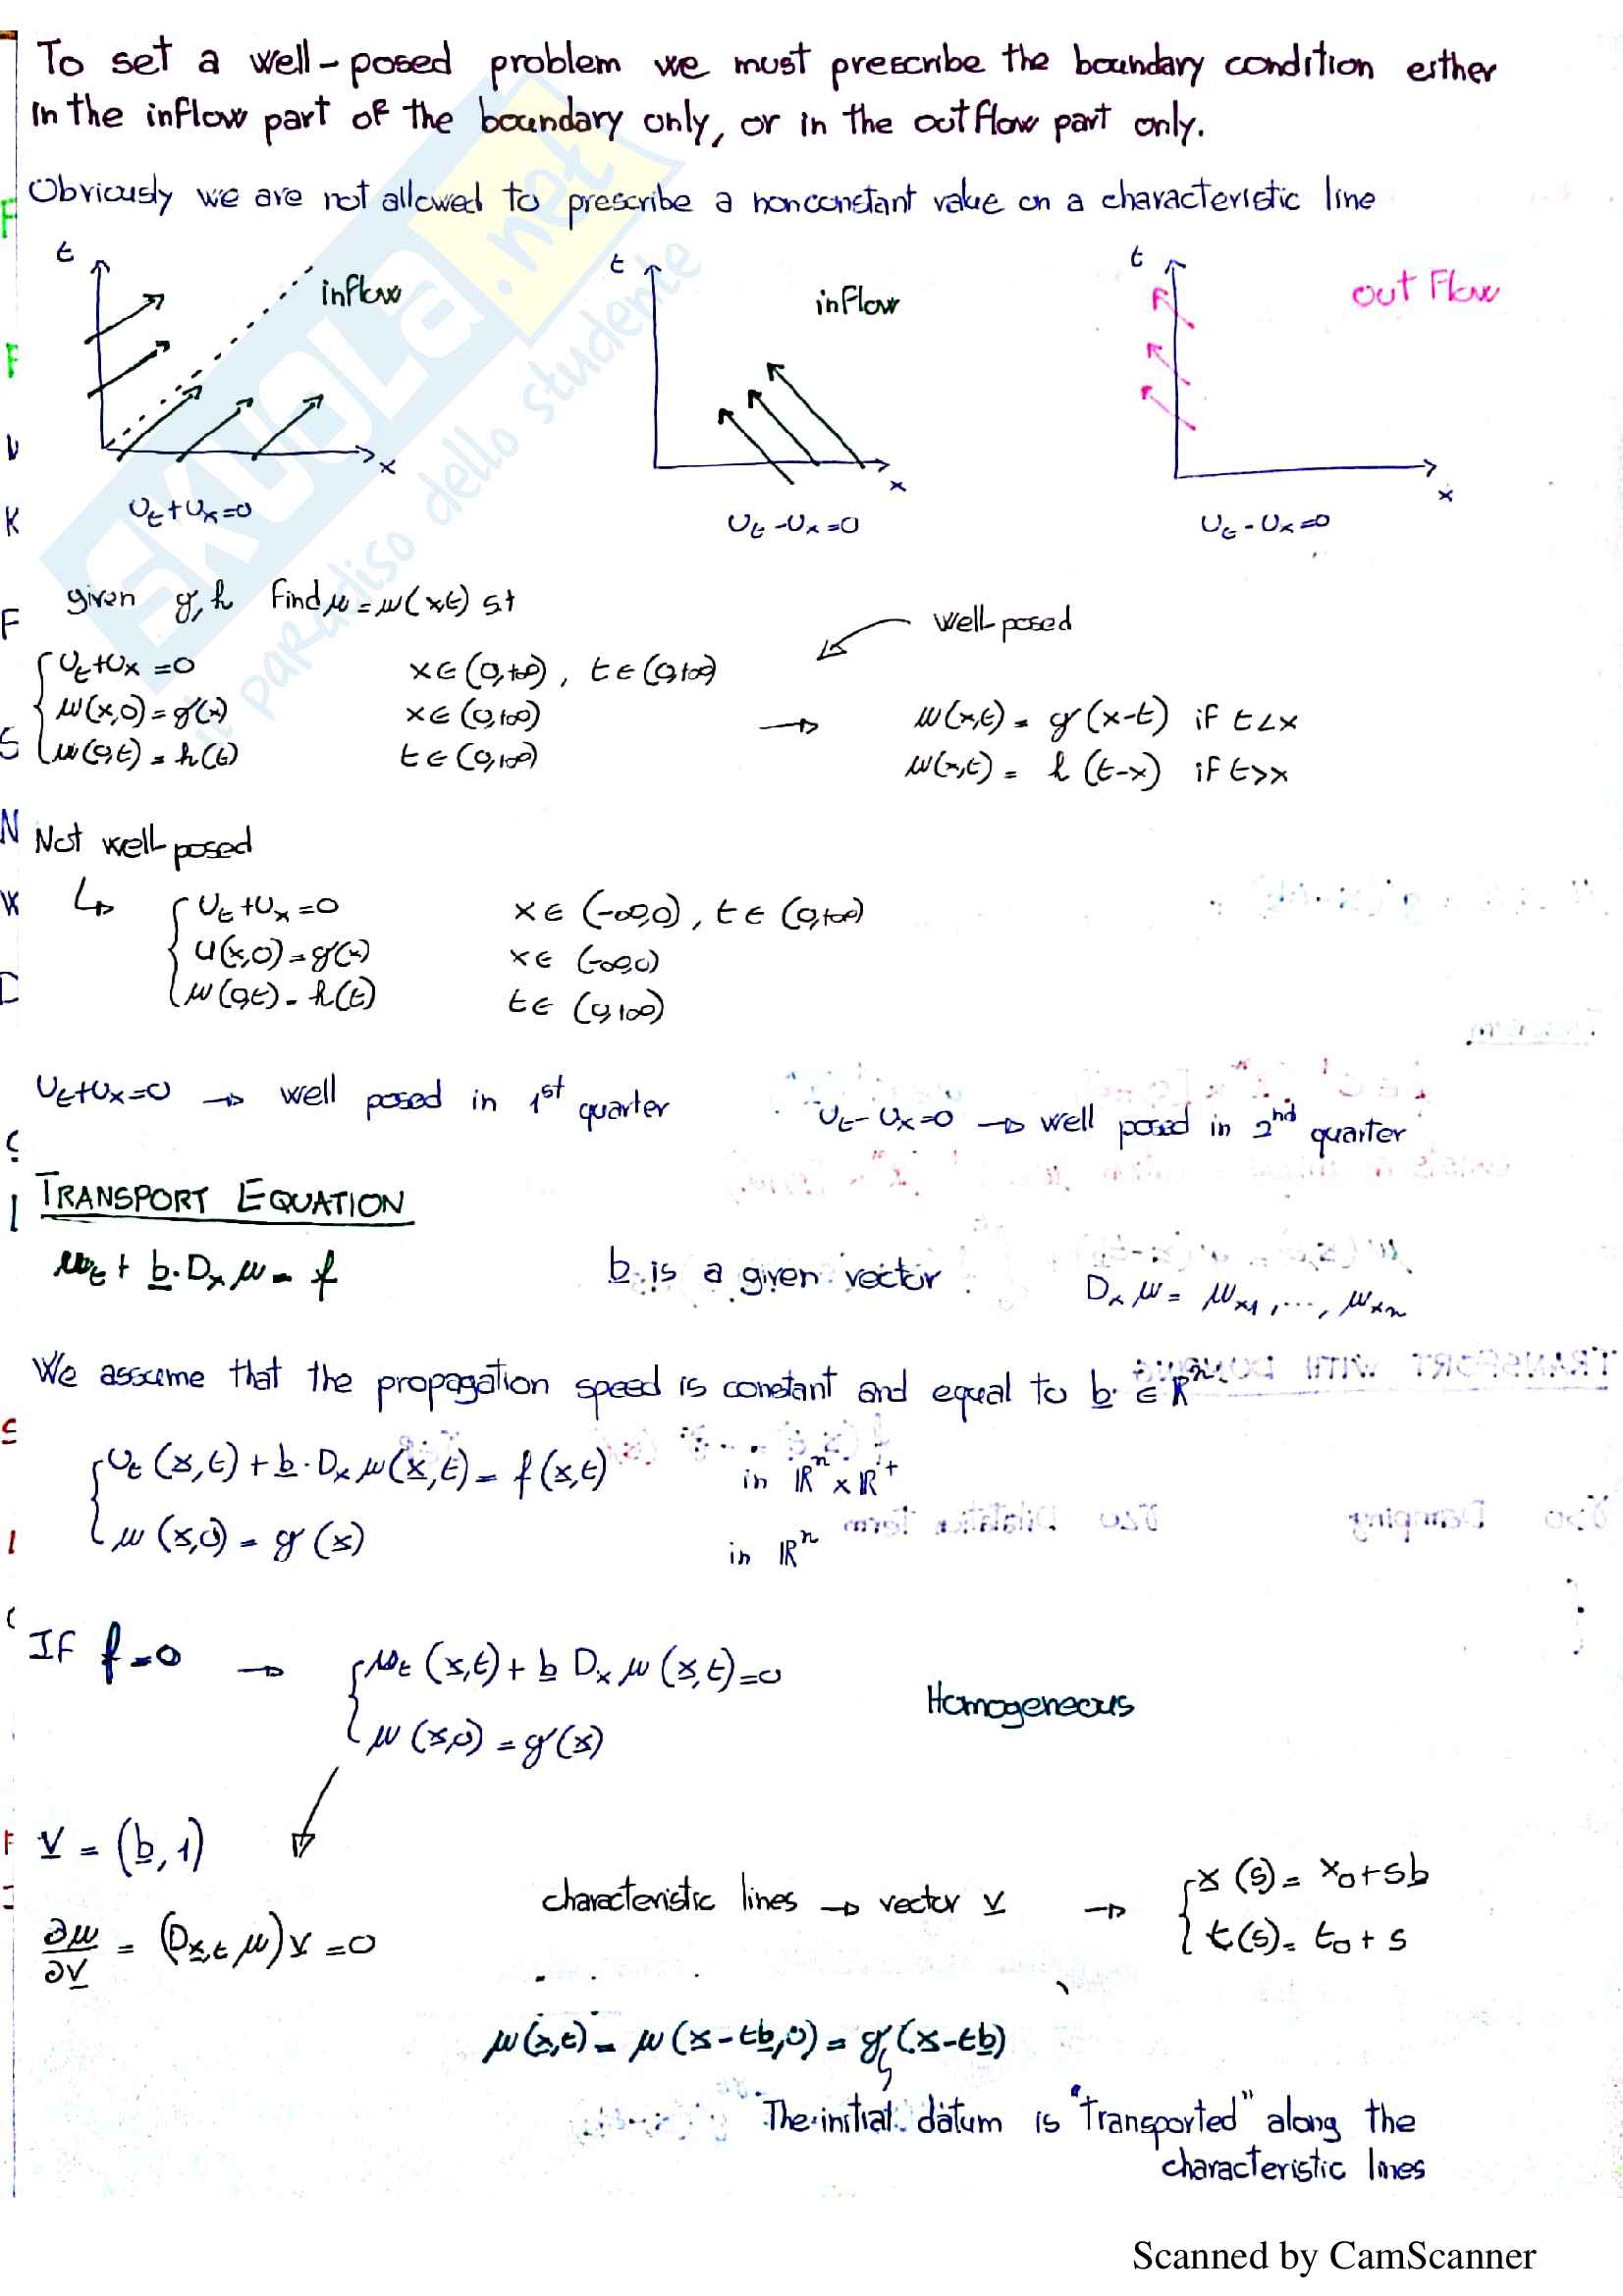 To set a well-posed problem we must prescribe the boundary condition either
in the inflow part of the boundary only, or in the outflow part only.
Obviously we are not allowed to prescribe a nonconstant value on a characteristic line
t inflow x
Ut+Ux=0
t inflow x
Ut-Ux=0
t outflow x
Ut-Ux=0
SKUOLA.net
il paradiso dello studente
given g, h find u=u(x,t) st
well-posed
{ Ut+Ux=0 x∈(0,+∞), t∈(0,+∞)
u(x,0)=g(x) x∈(0,+∞) → u(x,t)=g(x-t) if t<x
u(0,t)=h(t) t∈(0,+∞) u(x,t)=h(t-x) if t>x
Not well-posed
↳ { Ut+Ux=0 x∈(-∞,0), t∈(0,+∞)
u(x,0)=g(x) x∈(-∞,0)
u(0,t)=h(t) t∈(0,+∞)
Ut+Ux=0 → well posed in 1st quarter Ut-Ux=0 → well posed in 2nd quarter
TRANSPORT EQUATION
ut + b·Dx u = f b is a given vector Dx u = ux1, ..., uxn
We assume that the propagation speed is constant and equal to b ∈ Rn
{ Ut(x,t)+b·Dx u(x,t)=f(x,t) in Rn x R+
u(x,0)=g(x) in Rn
If f=0 → { ut(x,t)+b Dx u(x,t)=0
Homogeneous
u(x,0)=g(x)
v=(b,1)
characteristic lines → vector v → { x(s)=x0+sb
t(s)=t0+s
∂u/∂v = (Dx,t u)v=0
u(x,t)=u(x-tb,0)=g(x-tb)
The initial datum is "transported" along the
characteristic lines
Scanned by CamScanner